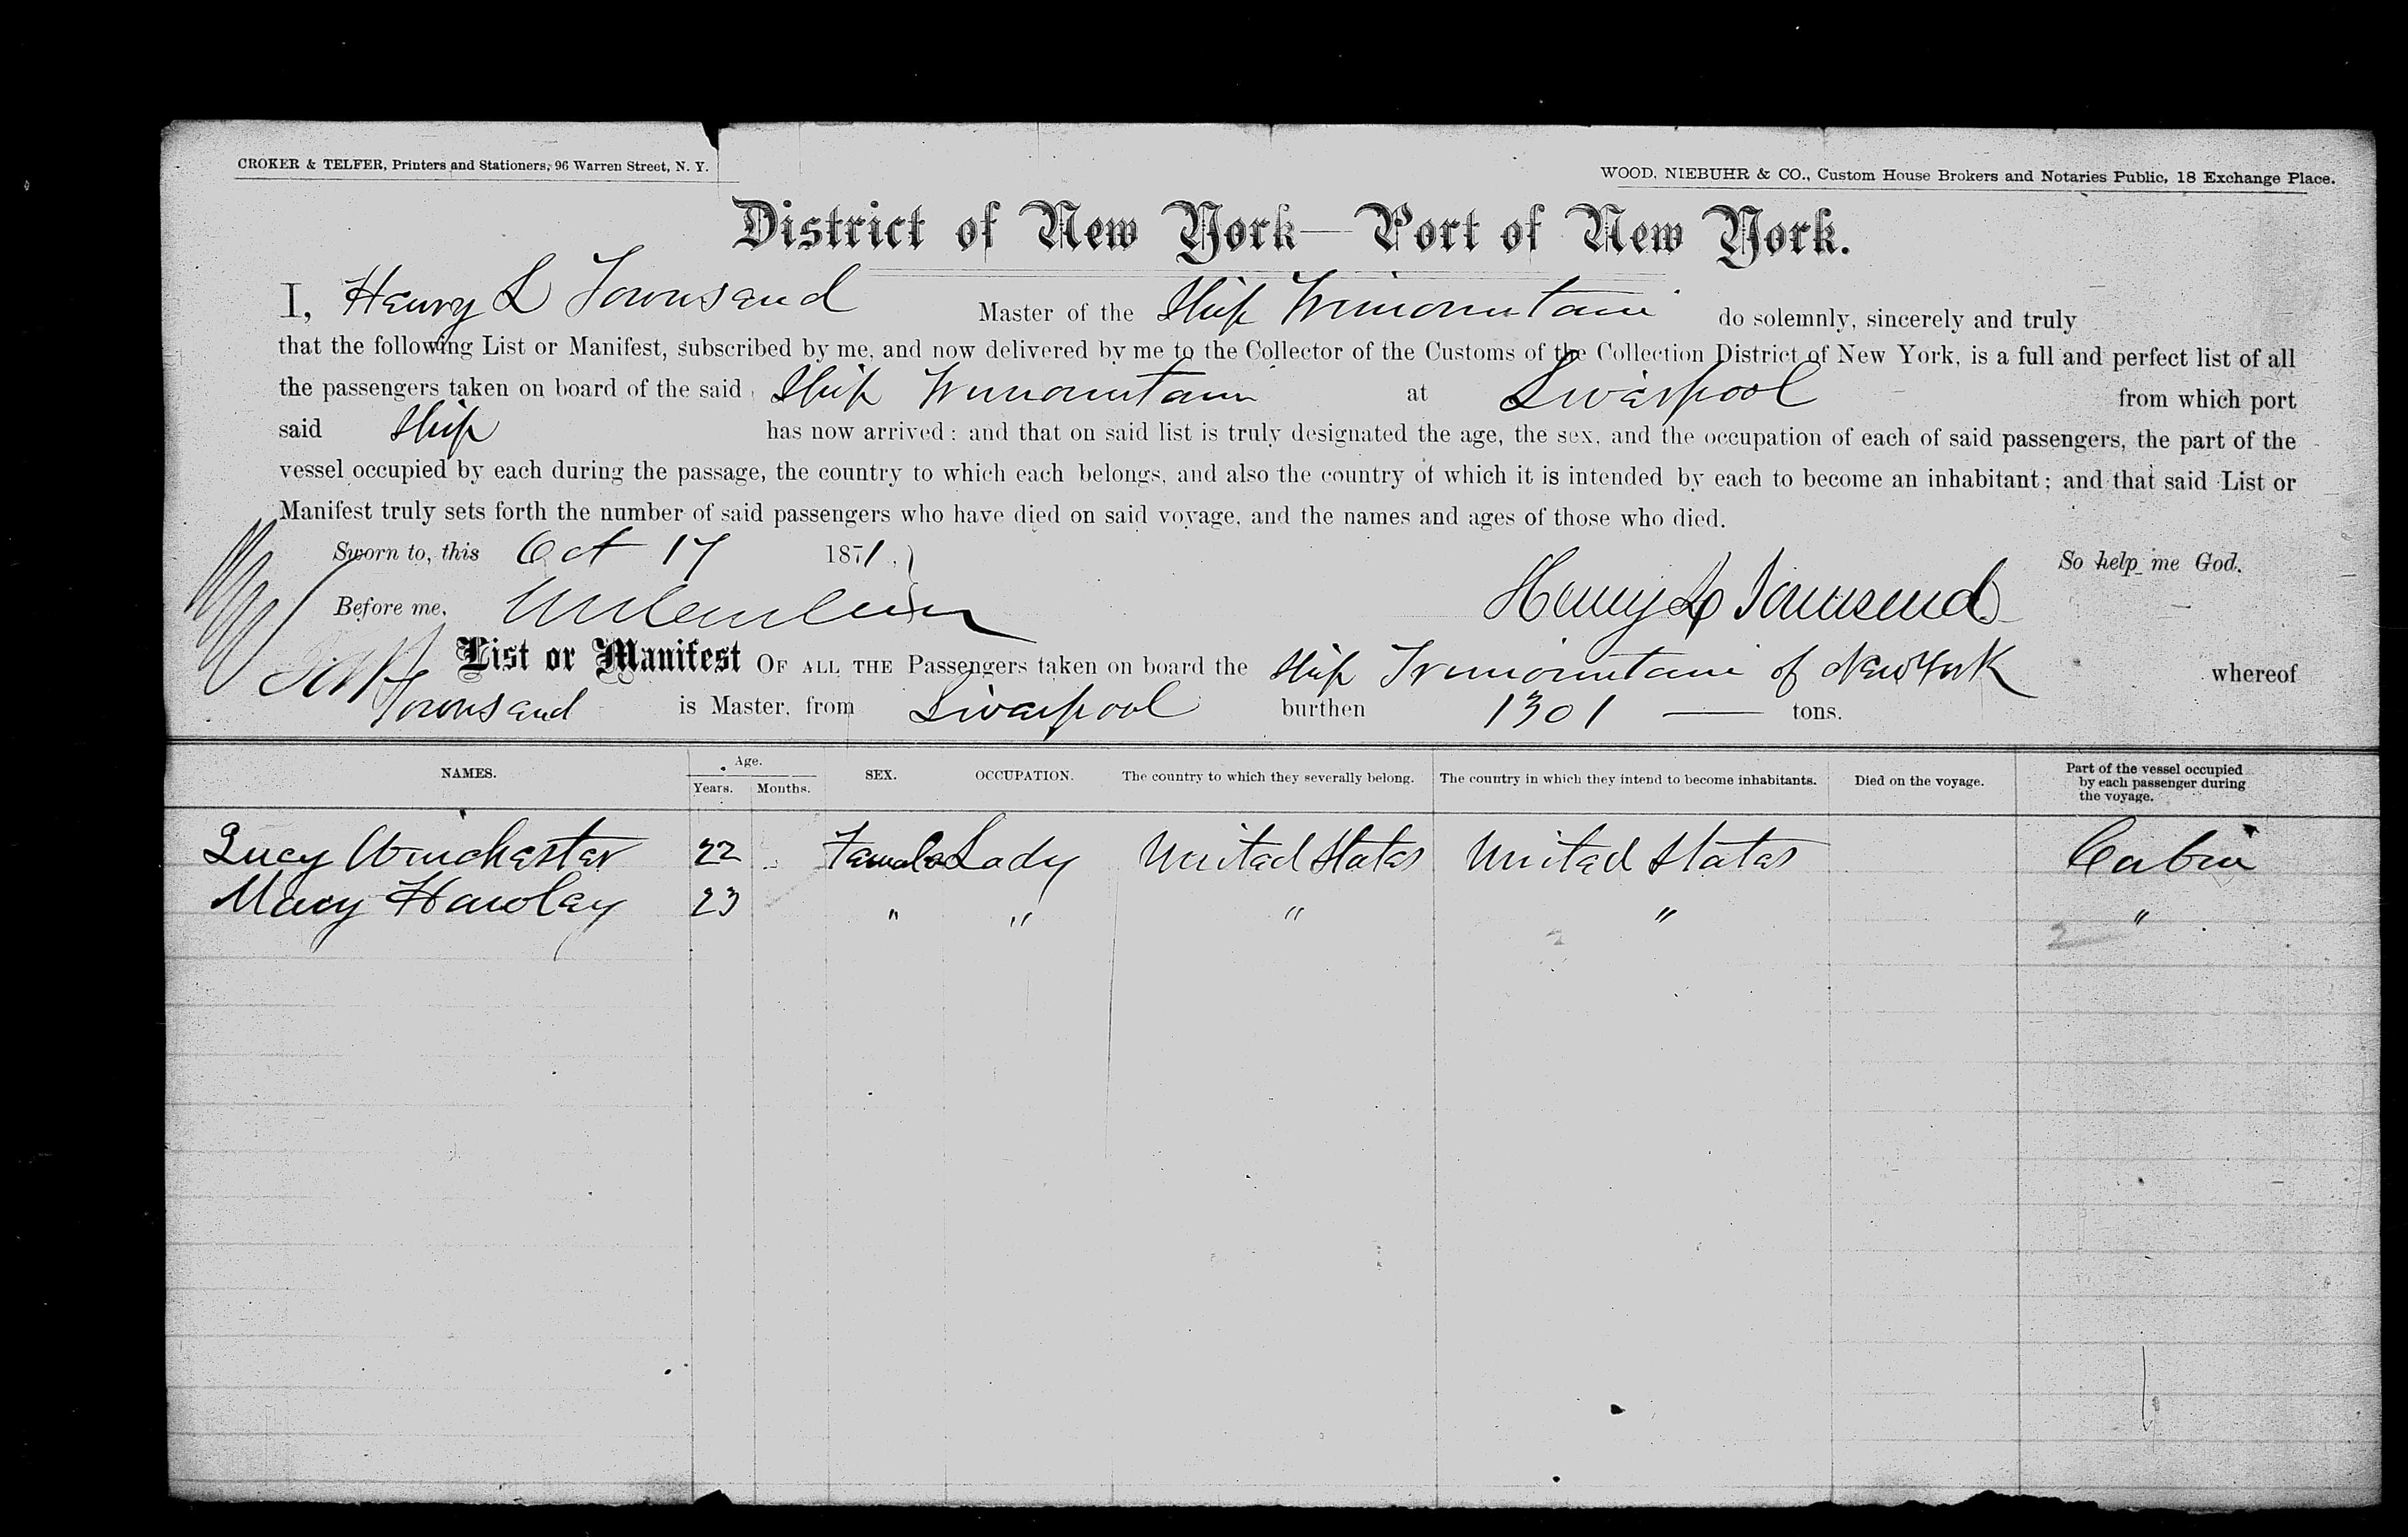 CROKER & TELFER, Printers and Stationers, 96 Warren Street, N. Y.
WOOD, NIEBUHR & CO., Custom House Brokers and Notaries Public, 18 Exchange Place.
District of New York—Port of New York.
I, Henry L Townsend Master of the Ship Trimountain do solemnly, sincerely and truly
that the following List or Manifest, subscribed by me, and now delivered by me to the Collector of the Customs of the Collection District of New York, is a full and perfect list of all
the passengers taken on board of the said Ship Trimountain at Liverpool from which port
said Ship has now arrived: and that on said list is truly designated the age, the sex, and the occupation of each of said passengers, the part of the
vessel occupied by each during the passage, the country to which each belongs, and also the country of which it is intended by each to become an inhabitant; and that said List or
Manifest truly sets forth the number of said passengers who have died on said voyage, and the names and ages of those who died.
Sworn to, this Oct 17 1871. So help me God.
Before me, Henry L Townsend
List or Manifest OF ALL THE Passengers taken on board the Ship Trimountain of New York whereof
Townsend is Master, from Liverpool burthen 1301 — tons.
NAMES. Age. Years. Months. SEX. OCCUPATION. The country to which they severally belong. The country in which they intend to become inhabitants. Died on the voyage. Part of the vessel occupied by each passenger during the voyage.
Lucy Winchester 22 Female Lady United States United States Cabin
Mary Hawley 23 " " " " "
2 2